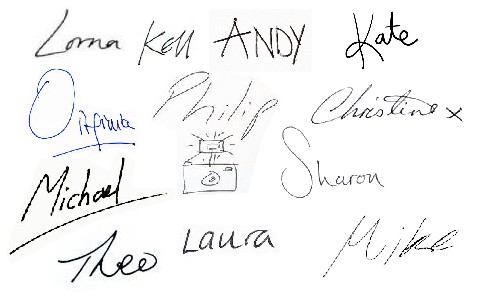 Lorna Kell ANDY Kate
Philip Christine x
Michael Sharon
Theo Laura Mike